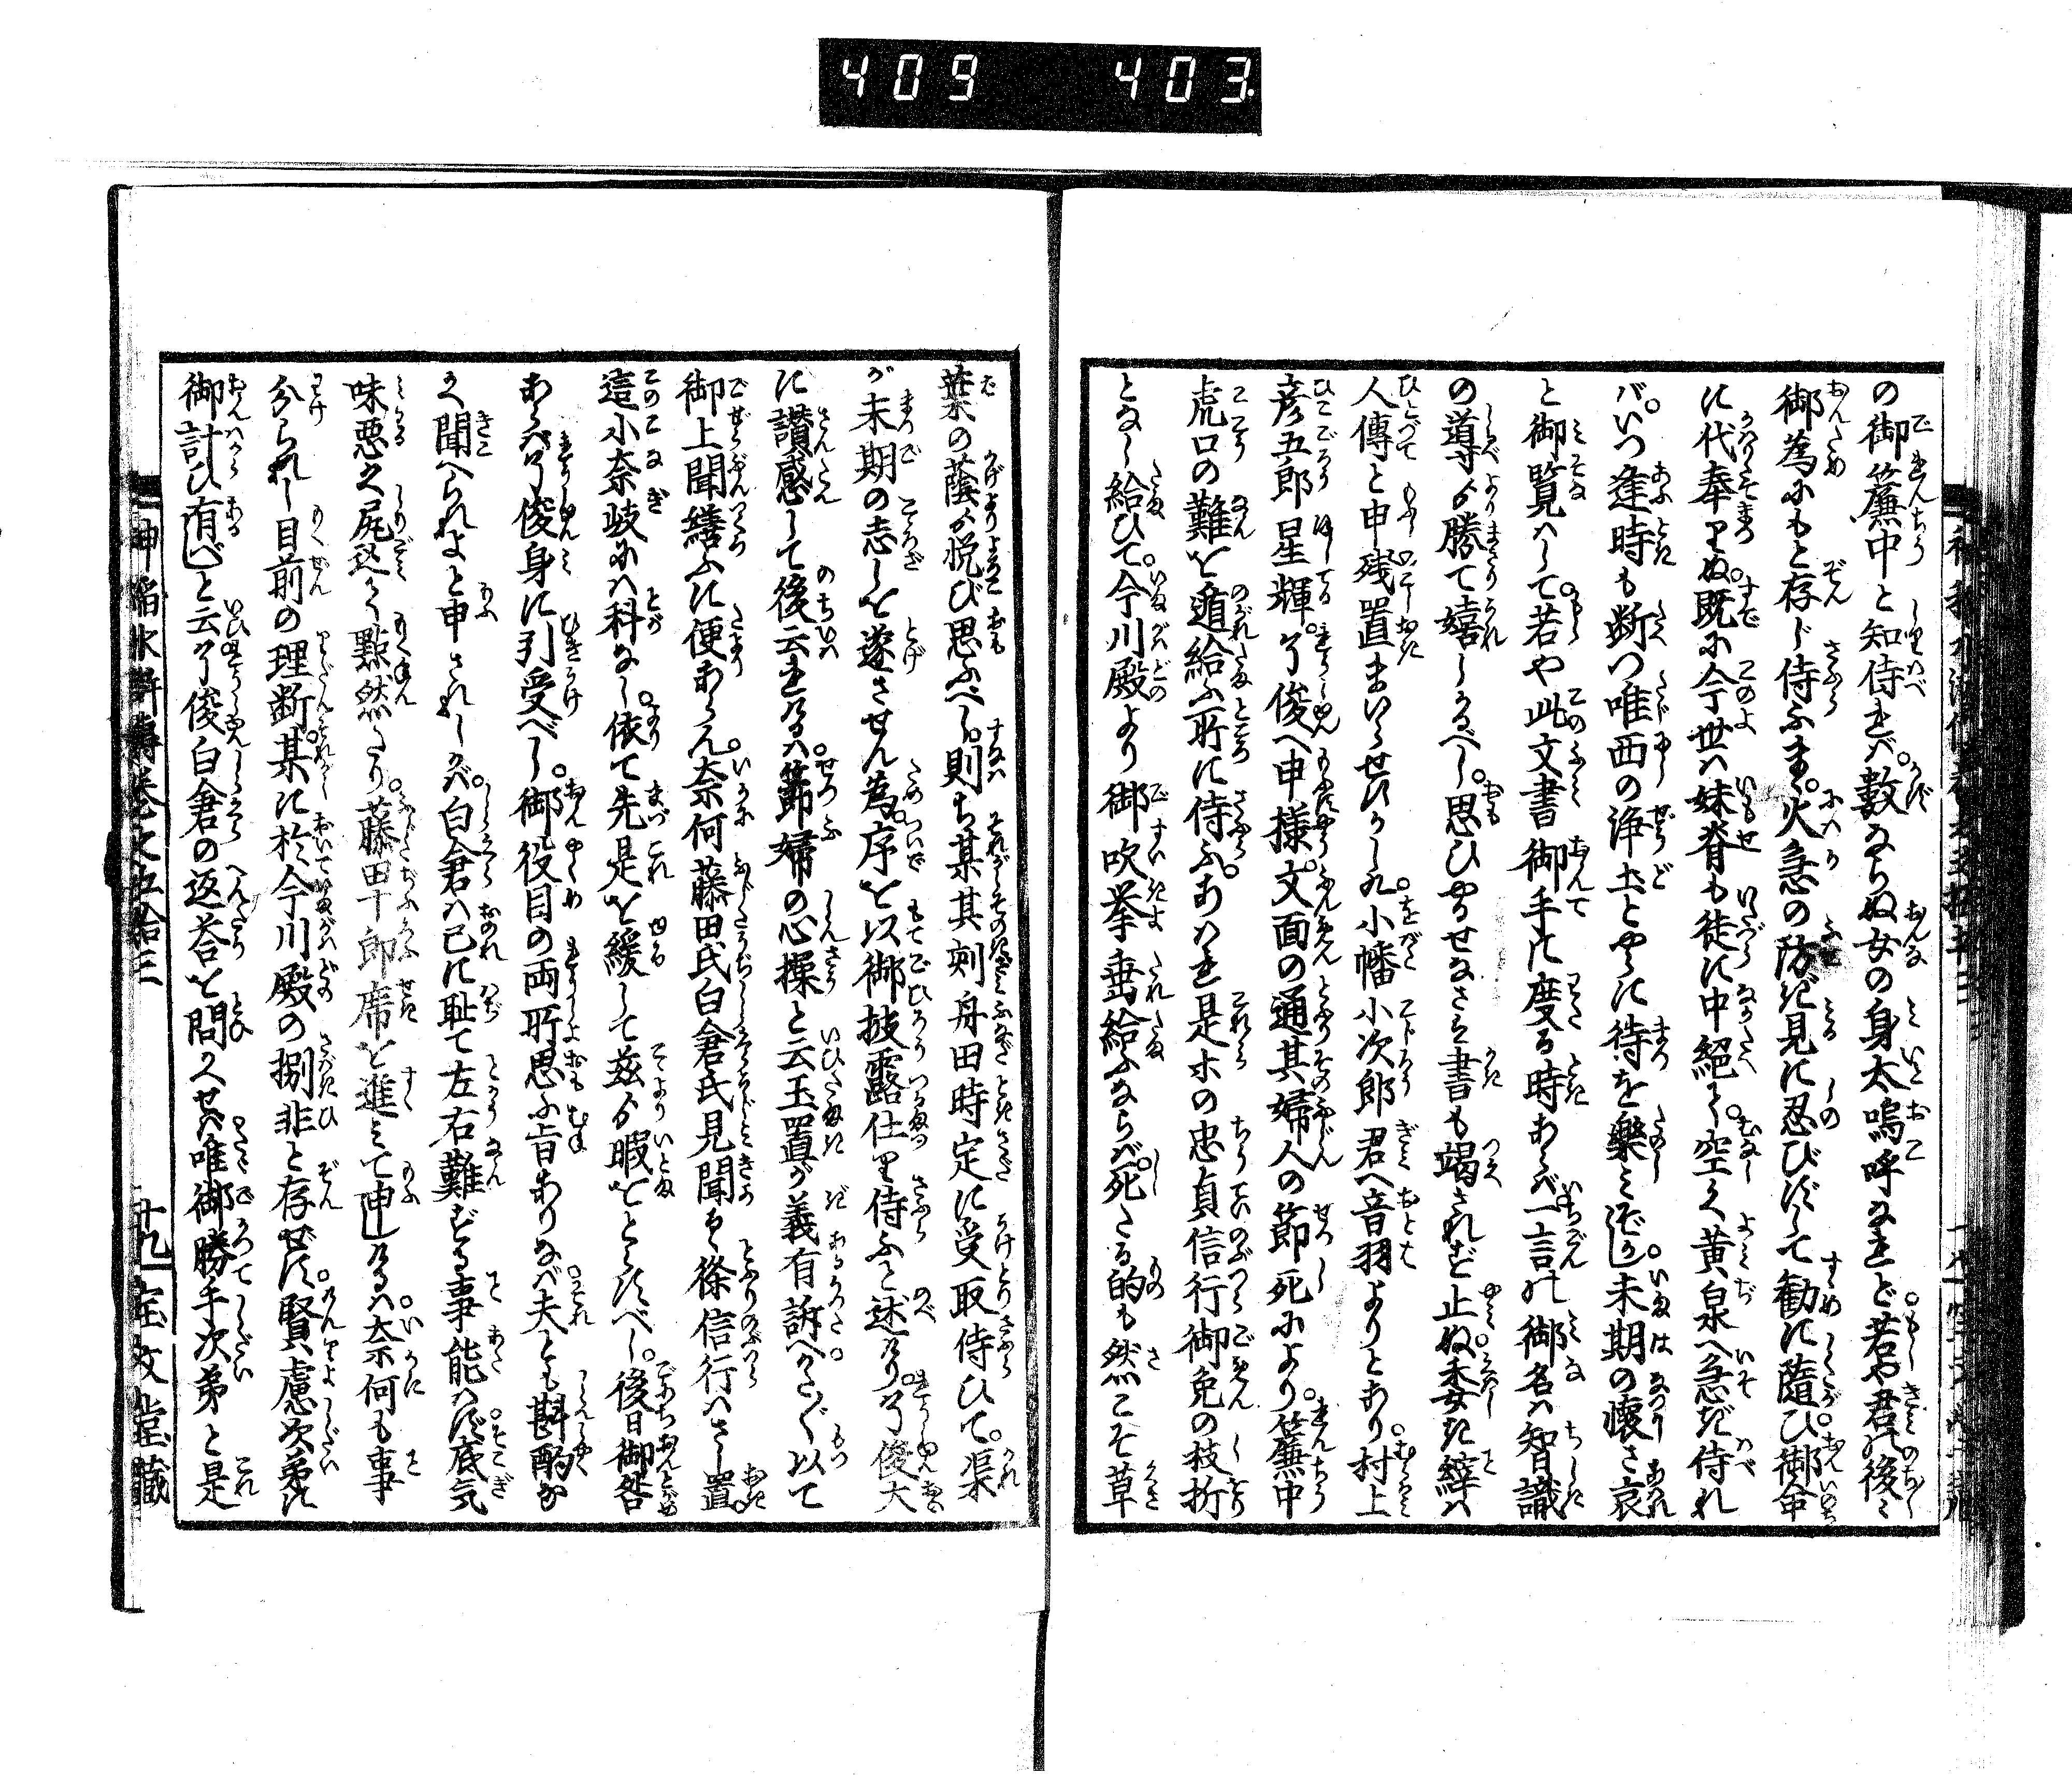 409 403
の御簾中と知侍れば。数ならぬ女の身太嗚呼なれど。若や君の後々
御為にもと存じ侍ふまゝ。火急の防ぎ見に忍びずして勧に随ひ。御命
に代奉りぬ。既に今世は妹脊も徒に中絶て。空く黄泉へ急ぎ侍れ
バ。いつ逢時も断つ唯西の浄土とやらに待を楽みぞかし。末期の懐さ哀
と御覧ハして。若や此文書御手に度る時あらバ一言の御名ハ智識
の導より勝て嬉しかるべし。思ひやるせなさに書も竭されず止ぬ。委き縡ハ
人傳と申残置まいらせ候かしく。小幡小次郎君へ音羽よりとあり。村上
彦五郎星輝。了俊へ申様。文面の通其婦人の節死により。簾中
虎口の難を遁給ふ所に侍ふ。あはれ是ホの忠貞信行御免の枝折
となし給ひて。今川殿より御吹挙垂給ふならバ。死たる的も然こそ草
葉の蔭より悦び思ふべし。則ち某其刻舟田時定に受取侍ひて。渠
が末期の志しを遂させん為。序を以御披露仕り侍ふと述けり。了俊大
に讃感して後云けるハ。節婦の心操と云玉置が義有訴へかた〴〵以て
御上聞繕ふに便あらん。奈何藤田氏白倉氏見聞の通信行ハさし置。
這小奈岐にハ科なし。依て先是を緩して茲より暇をとらすべし。後日御咎
あらバ了俊身に引受べし。御役目の両所思ふ旨ありなバ夫とも斟酌な
く聞へられよと申されしかバ。白倉ハ己に耻て左右難ずる事能ハず。底気
味悪く尻込して黙然たり。藤田十郎席を進ミて申しけるハ。奈何も事
分られし目前の理断。某に於今川殿の捌非と存ぜず。賢慮次第に
御計ひ有べしと云。了俊白倉の返答を問へせバ唯御勝手次第と是
神稲水滸傳巻之五拾三
十九
宝文堂蔵